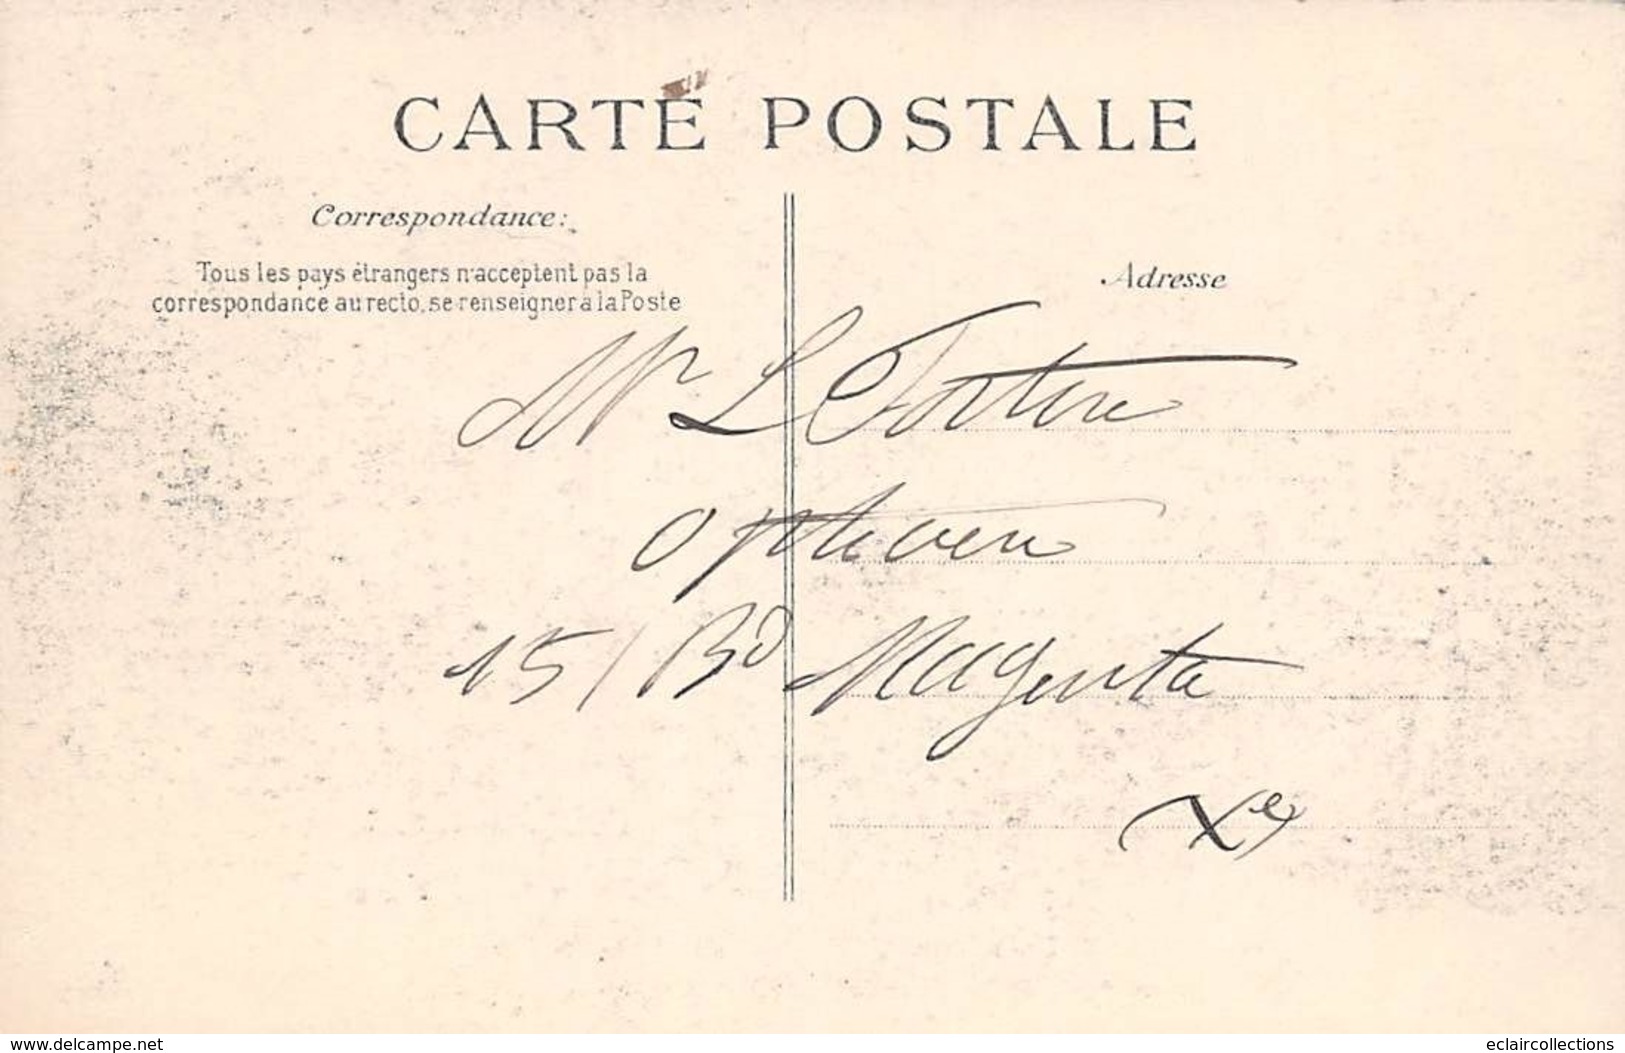 CARTE POSTALE
Correspondance:
Tous les pays étrangers n'acceptent pas la
correspondance au recto, se renseigner à la Poste
Adresse
Mr L
opticien
15/ Bd Magenta
Xe
www.delcampe.net
eclaircollections